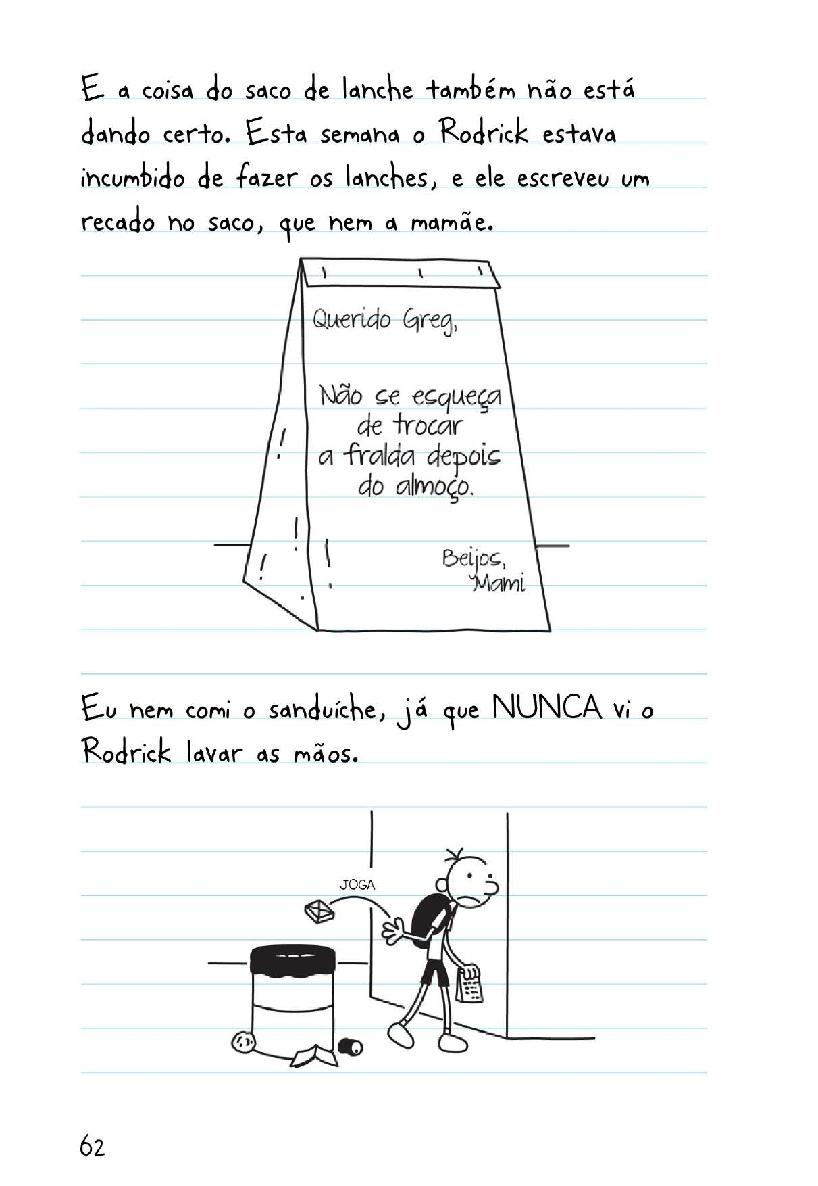 E a coisa do saco de lanche também não está
dando certo. Esta semana o Rodrick estava
incumbido de fazer os lanches, e ele escreveu um
recado no saco, que nem a mamãe.
Querido Greg,
Não se esqueça
de trocar
a fralda depois
do almoço.
Beijos,
Mami
Eu nem comi o sanduíche, já que NUNCA vi o
Rodrick lavar as mãos.
JOGA
62